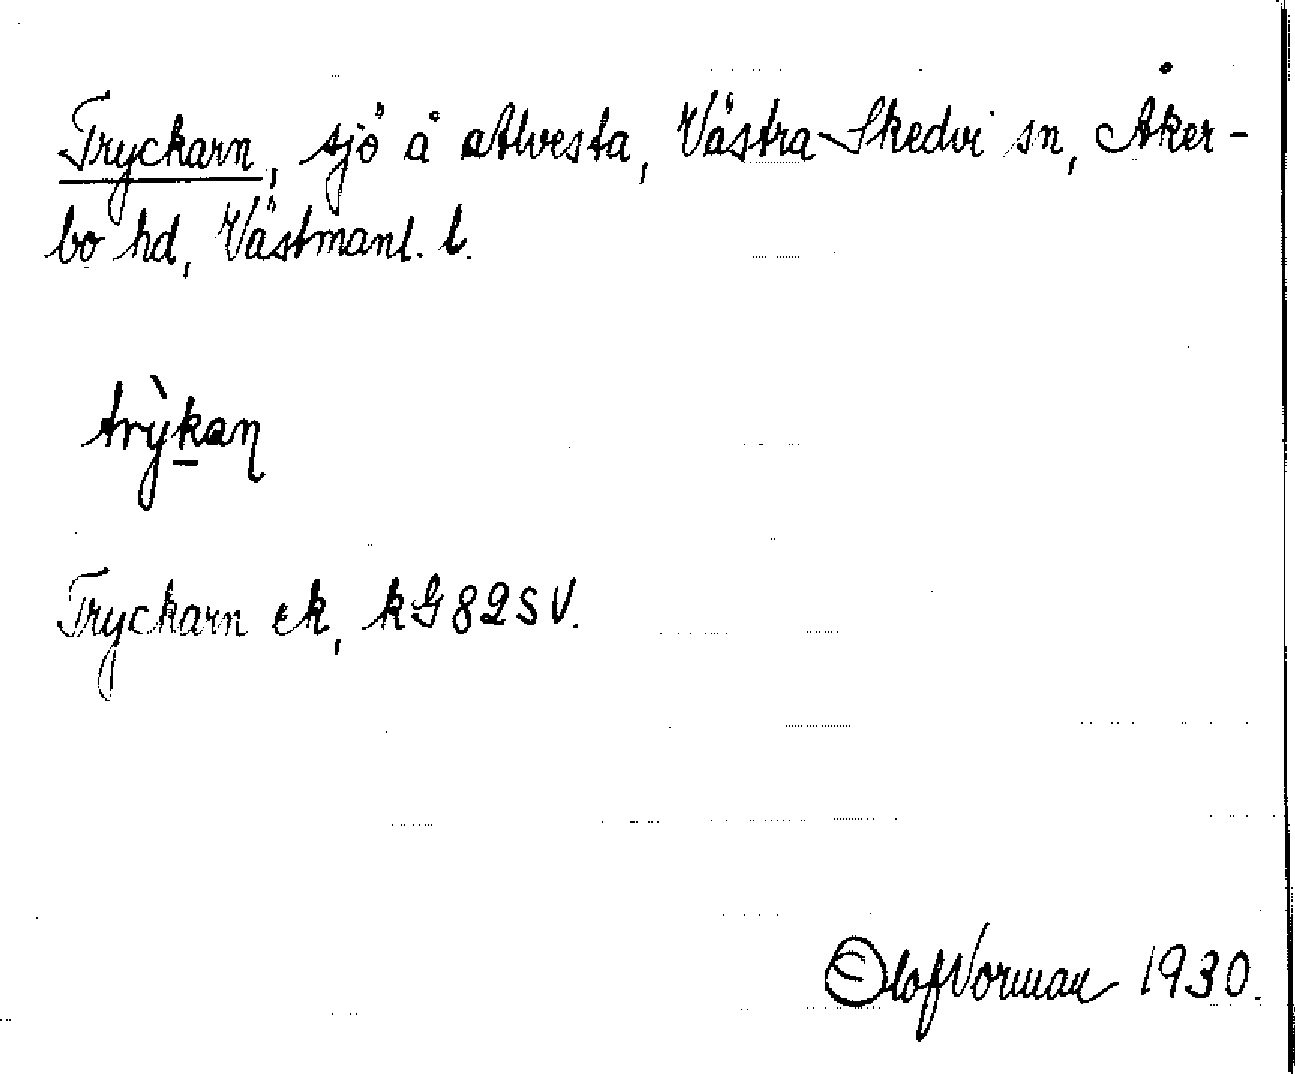 Tryckarn, sjö å Alvesta, Västra Skedvi sn, Åker-
bo hd, Västmanl. l.
trỳkan
Tryckarn ek, kG82SV.
Olof Norman 1930.